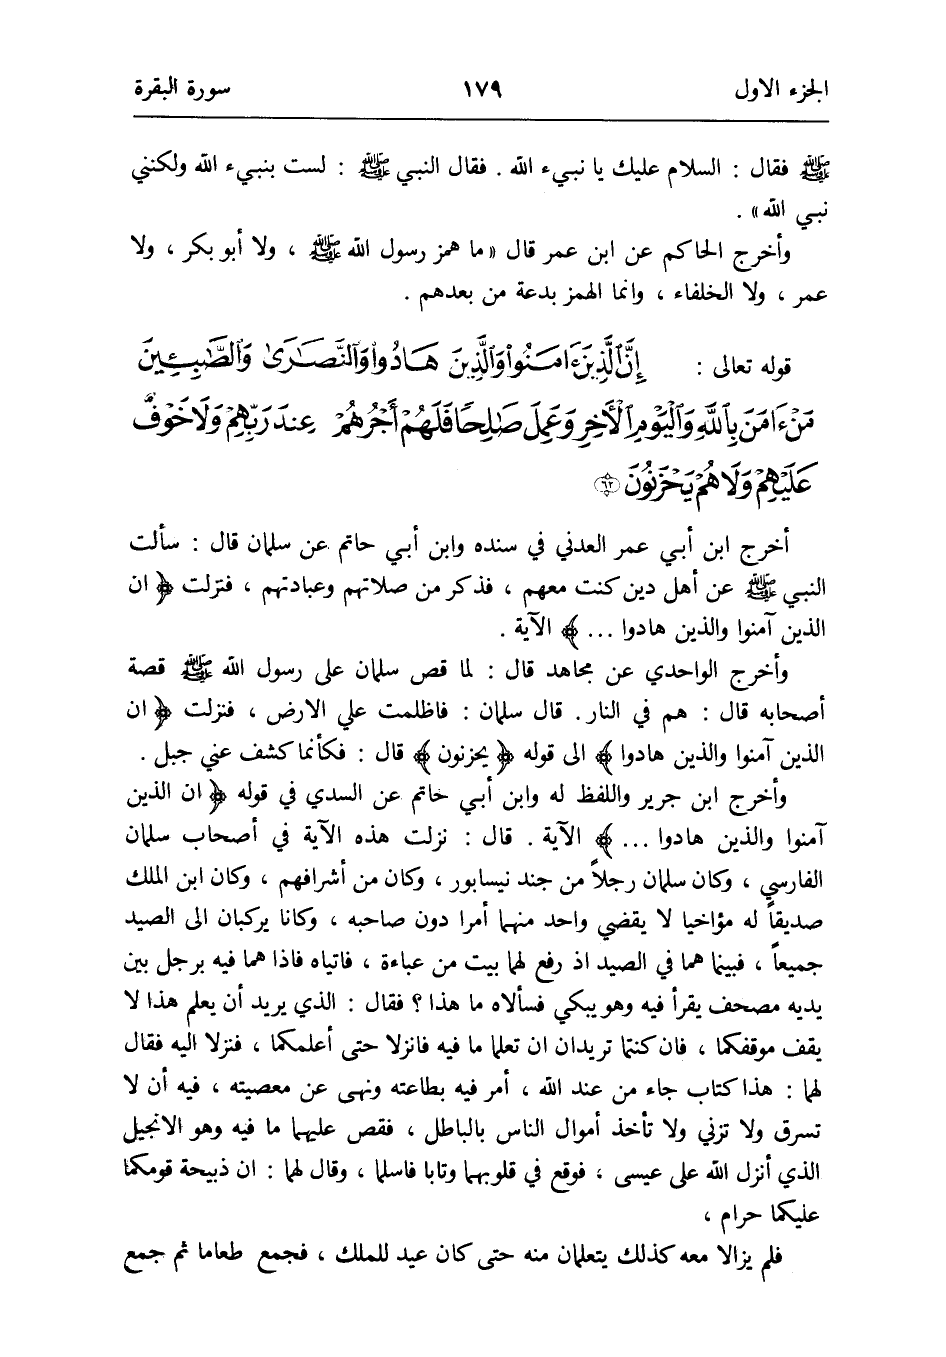 الجزء الاول ١٧٩ سورة البقرة
ﷺ فقال : السلام عليك يا نبيء الله . فقال النبي ﷺ : لست بنبيء الله ولكنني
نبي الله » .
وأخرج الحاكم عن ابن عمر قال « ما همز رسول الله ﷺ ، ولا أبو بكر ، ولا
عمر ، ولا الخلفاء ، وانما الهمز بدعة من بعدهم .
قوله تعالى : إِنَّ ٱلَّذِينَ ءَامَنُواْ وَٱلَّذِينَ هَادُواْ وَٱلنَّصَٰرَىٰ وَٱلصَّٰبِـِٔينَ
مَنْ ءَامَنَ بِٱللَّهِ وَٱلْيَوْمِ ٱلْأَخِرِ وَعَمِلَ صَٰلِحًا فَلَهُمْ أَجْرُهُمْ عِندَ رَبِّهِمْ وَلَا خَوْفٌ
عَلَيْهِمْ وَلَا هُمْ يَحْزَنُونَ ٦٢
أخرج ابن أبي عمر العدني في سنده وابن أبي حاتم عن سلمان قال : سألت
النبي ﷺ عن أهل دين كنت معهم ، فذكر من صلاتهم وعبادتهم ، فنزلت ﴿ ان
الذين آمنوا والذين هادوا ... ﴾ الآية .
وأخرج الواحدي عن مجاهد قال : لما قص سلمان على رسول الله ﷺ قصة
أصحابه قال : هم في النار . قال سلمان : فاظلمت علي الارض ، فنزلت ﴿ ان
الذين آمنوا والذين هادوا ﴾ الى قوله ﴿ يحزنون ﴾ قال : فكأنما كشف عني جبل .
وأخرج ابن جرير واللفظ له وابن أبي خاتم عن السدي في قوله ﴿ ان الذين
آمنوا والذين هادوا ... ﴾ الآية . قال : نزلت هذه الآية في أصحاب سلمان
الفارسي ، وكان سلمان رجلاً من جند نيسابور ، وكان من أشرافهم ، وكان ابن الملك
صديقاً له مؤاخيا لا يقضي واحد منهما أمرا دون صاحبه ، وكانا يركبان الى الصيد
جميعاً ، فبينما هما في الصيد اذ رفع لهما بيت من عباءة ، فاتياه فاذا هما فيه برجل بين
يديه مصحف يقرأ فيه وهو يبكي فسألاه ما هذا ؟ فقال : الذي يريد أن يعلم هذا لا
يقف موقفكما ، فان كنتما تريدان ان تعلما ما فيه فانزلا حتى أعلمكما ، فنزلا اليه فقال
لهما : هذا كتاب جاء من عند الله ، أمر فيه بطاعته ونهى عن معصيته ، فيه أن لا
تسرق ولا تزني ولا تأخذ أموال الناس بالباطل ، فقص عليهما ما فيه وهو الانجيل
الذي أنزل الله على عيسى ، فوقع في قلوبهما وتابا فاسلما ، وقال لهما : ان ذبيحة قومكما
عليكما حرام ،
فلم يزالا معه كذلك يتعلمان منه حتى كان عيد للملك ، فجمع طعاما ثم جمع